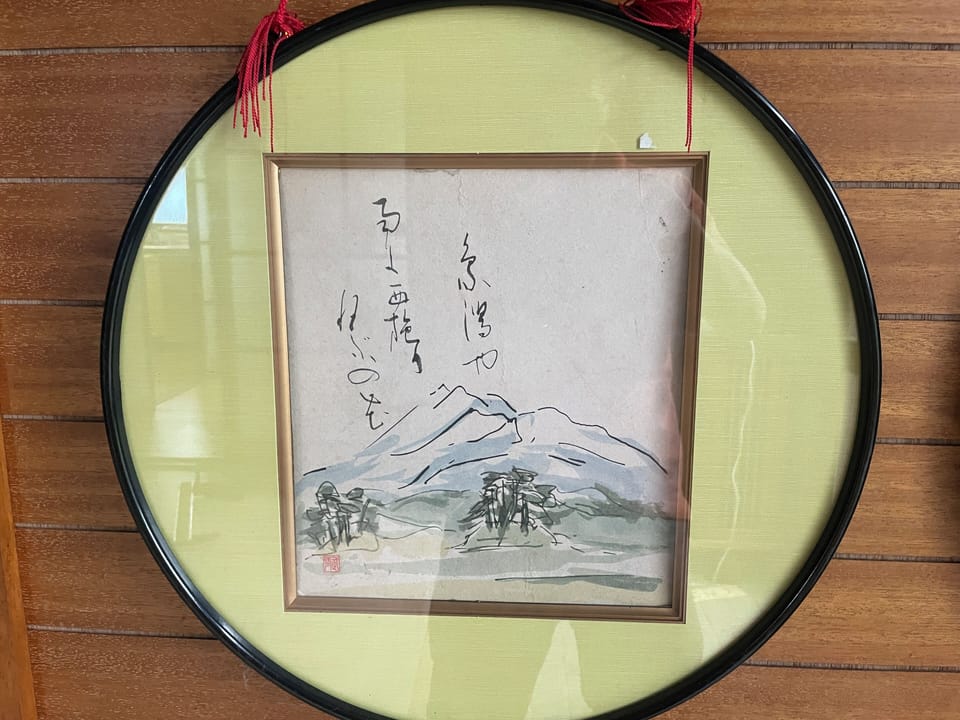 象潟や
雨に西施か
ねぶの花